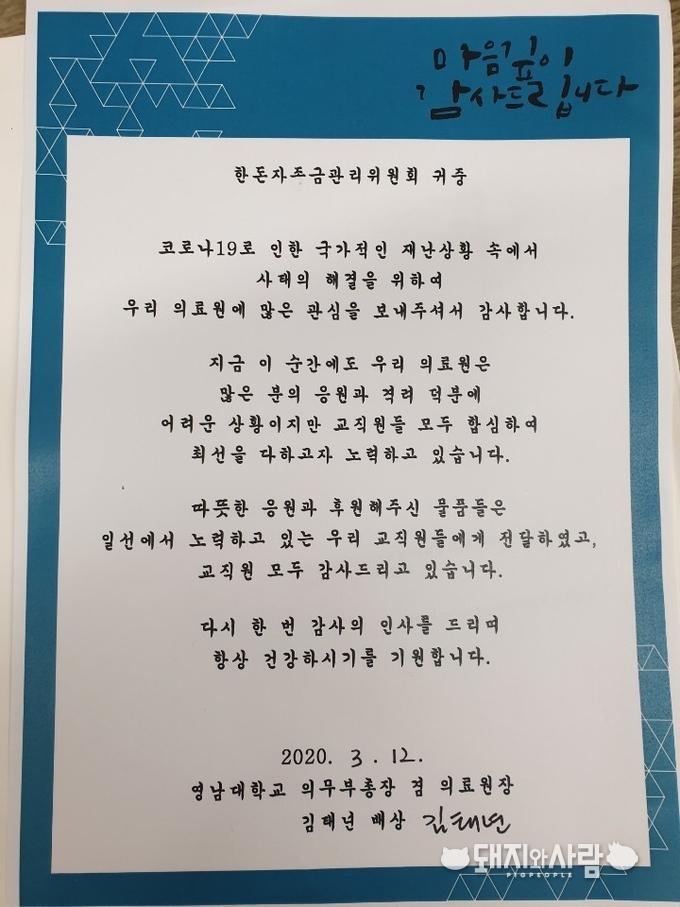 마음깊이
감사드립니다
한돈자조금관리위원회 귀중
코로나19로 인한 국가적인 재난상황 속에서
사태의 해결을 위하여
우리 의료원에 많은 관심을 보내주셔서 감사합니다.
지금 이 순간에도 우리 의료원은
많은 분의 응원과 격려 덕분에
어려운 상황이지만 교직원들 모두 합심하여
최선을 다하고자 노력하고 있습니다.
따뜻한 응원과 후원해주신 물품들은
일선에서 노력하고 있는 우리 교직원들에게 전달하였고,
교직원 모두 감사드리고 있습니다.
다시 한 번 감사의 인사를 드리며
항상 건강하시기를 기원합니다.
2020. 3 . 12.
영남대학교 의무부총장 겸 의료원장
김태년 배상 김태년
돼지와사람
PIGPEOPLE